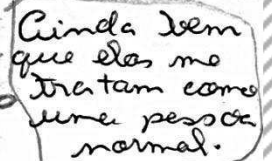 Ainda bem
que elas me
tratam como
uma pessoa
normal.